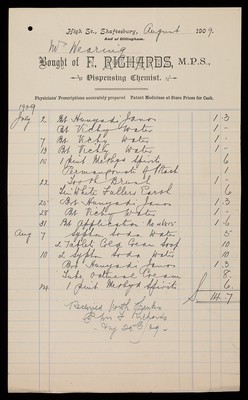 High St., Shaftesbury, August 1909.
And at Gillingham.
Mr Wearing
Bought of F. RICHARDS, M.P.S.,
Dispensing Chemist.
Physicians' Prescriptions accurately prepared Patent Medicines at Store Prices for Cash.
1909
July 2 Bt Hunyadi Janos 1 3
Bt Vichy Water 1 -
7 Bt Vichy Water 1 -
13 Bt Vichy Water 1 -
15 1 pint Methyd Spirits 6
Permanganate of Potash 1
22 Tooth Brush 1 -
Tin White Fullers Earth 6
25 Bt Hunyadi Janos 1 3
28 Bt Vichy Water 1 -
31 Bt Application 1
Aug 7 Syphon Soda Water 5
2 Tablet Old Bean Soap 10
10 2 Syphon Soda Water 10
Bt Hunyadi Janos 1 3
Tube Cream 8
24 1 pint Methyd Spirits 6
14 7
Received with thanks
F Richards
Aug 30/09